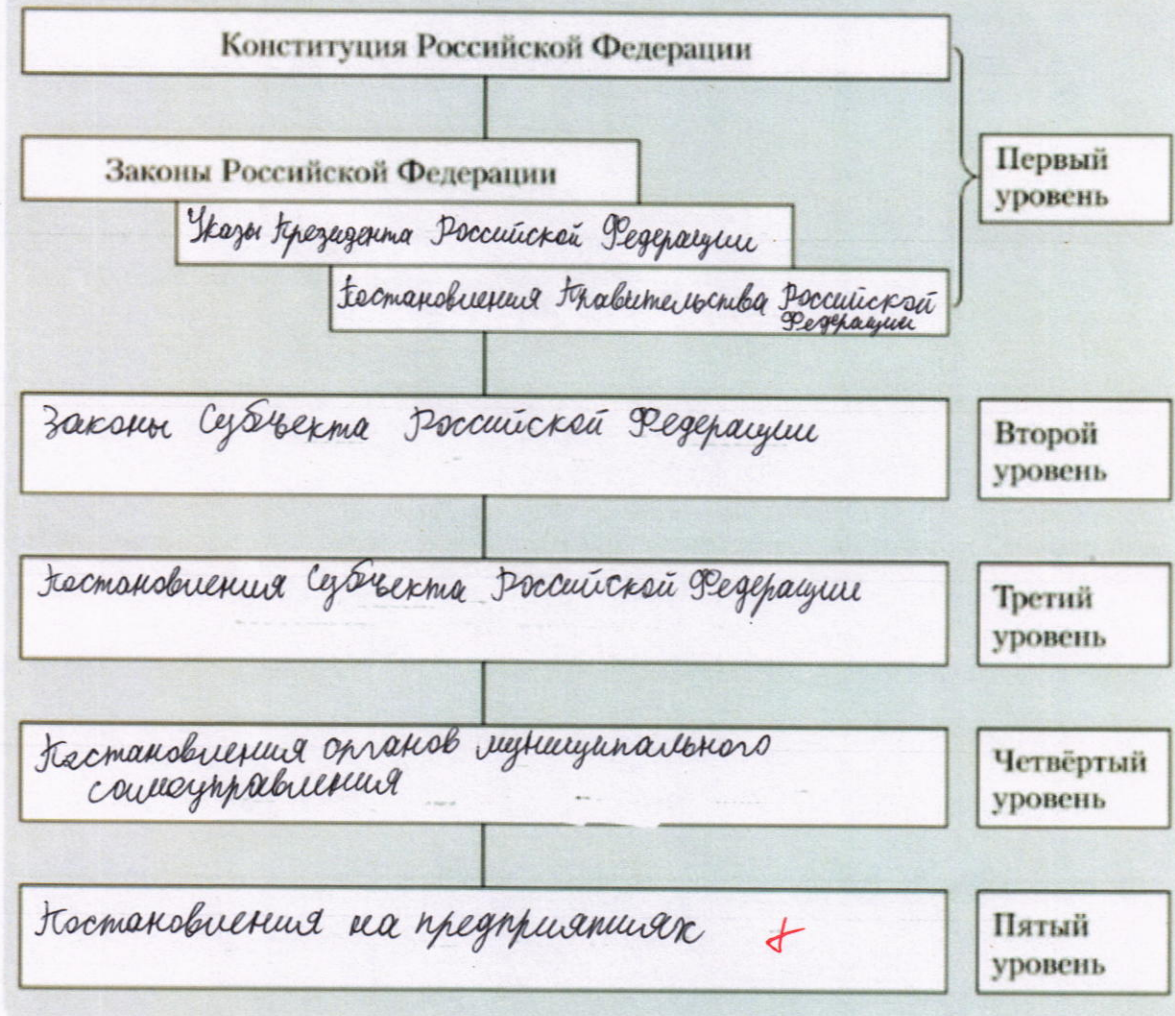 Конституция Российской Федерации
Законы Российской Федерации
Первый
уровень
Указы Президента Российской Федерации
Постановления Правительства Российской
Федерации
Законы Субъекта Российской Федерации
Второй
уровень
Постановления Субъекта Российской Федерации
Третий
уровень
Постановления органов муниципального
самоуправления
Четвёртый
уровень
Постановления на предприятиях
Пятый
уровень